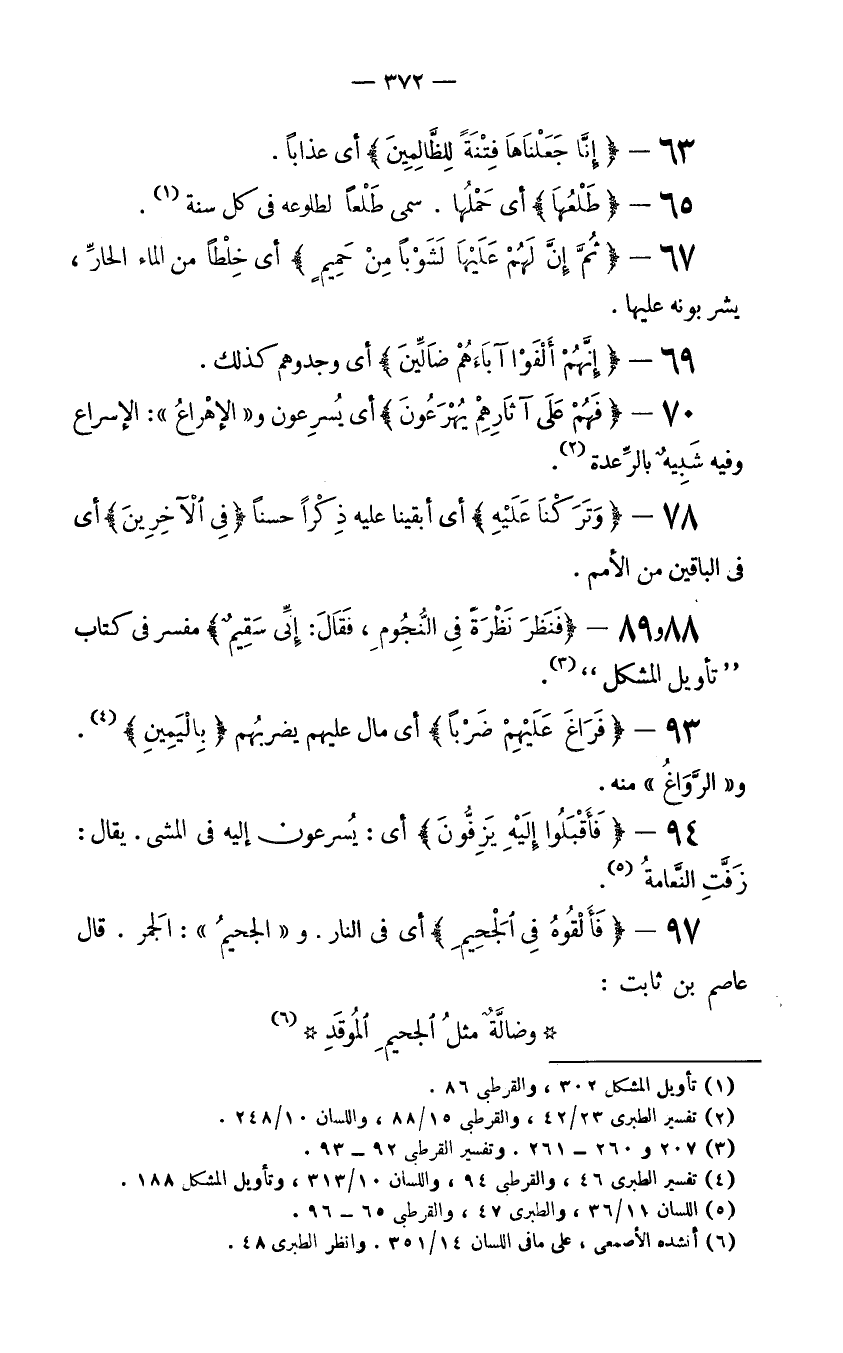 — ٣٧٢ —
٦٣ — ﴿ إِنَّا جَعَلْنَاهَا فِتْنَةً لِلظَّالِمِينَ ﴾ أى عذاباً .
٦٥ — ﴿ طَلْعُهَا ﴾ أى حَمْلُها . سمى طَلْعاً لطلوعه فى كل سنة (١) .
٦٧ — ﴿ ثُمَّ إِنَّ لَهُمْ عَلَيْهَا لَشَوْباً مِنْ حَمِيمٍ ﴾ أى خِلْطاً من الماء الحارِّ ،
يشربونه عليها .
٦٩ — ﴿ إِنَّهُمْ أَلْفَوْا آبَاءَهُمْ ضَالِّينَ ﴾ أى وجدوهم كذلك .
٧٠ — ﴿ فَهُمْ عَلَى آثَارِهِمْ يُهْرَعُونَ ﴾ أى يُسرِعون و« الإهْراعُ »: الإسراع
وفيه شَبِيهٌ بالرِّعدة (٢) .
٧٨ — ﴿ وَتَرَكْنَا عَلَيْهِ ﴾ أى أبقينا عليه ذِكْراً حسناً ﴿ فِى ٱلْآخِرِينَ ﴾ أى
فى الباقين من الأمم .
٨٨و٨٩ — ﴿فَنَظَرَ نَظْرَةً فِى النُّجُومِ ، فَقَالَ: إِنِّى سَقِيمٌ﴾ مفسر فى كتاب
”تأويل المشكل“ (٣).
٩٣ — ﴿ فَرَاغَ عَلَيْهِمْ ضَرْباً ﴾ أى مال عليهم يضربُهم ﴿ بِالْيَمِينِ ﴾ (٤) .
و« الرَّوَاغُ » منه .
٩٤ — ﴿ فَأَقْبَلُوا إِلَيْهِ يَزِفُّونَ ﴾ أى : يُسرعون إليه فى المشى . يقال :
زَفَّتِ النَّعامةُ (٥).
٩٧ — ﴿ فَأَلْقُوهُ فِى ٱلْجَحِيمِ ﴾ أى فى النار . و « الجحيمُ » : الجمر . قال
عاصم بن ثابت :
* وضالَّةٌ مثلُ ٱلجحيمِ ٱلمُوقَدِ * (٦)
(١) تأويل المشكل ٣٠٢ ، والقرطبى ٨٦ .
(٢) تفسير الطبرى ٤٢/٢٣ ، والقرطبى ٨٨/١٥ ، واللسان ٢٤٨/١٠ .
(٣) ٢٠٧ و ٢٦٠ — ٢٦١ . وتفسير القرطبى ٩٢ — ٩٣ .
(٤) تفسير الطبرى ٤٦ ، والقرطبى ٩٤ ، واللسان ٣١٣/١٠ ، وتأويل المشكل ١٨٨ .
(٥) اللسان ٣٦/١١ ، والطبرى ٤٧ ، والقرطبى ٦٥ — ٩٦ .
(٦) أنشده الأصمعى ، على مافى اللسان ٣٥١/١٤ . وانظر الطبرى ٤٨ .